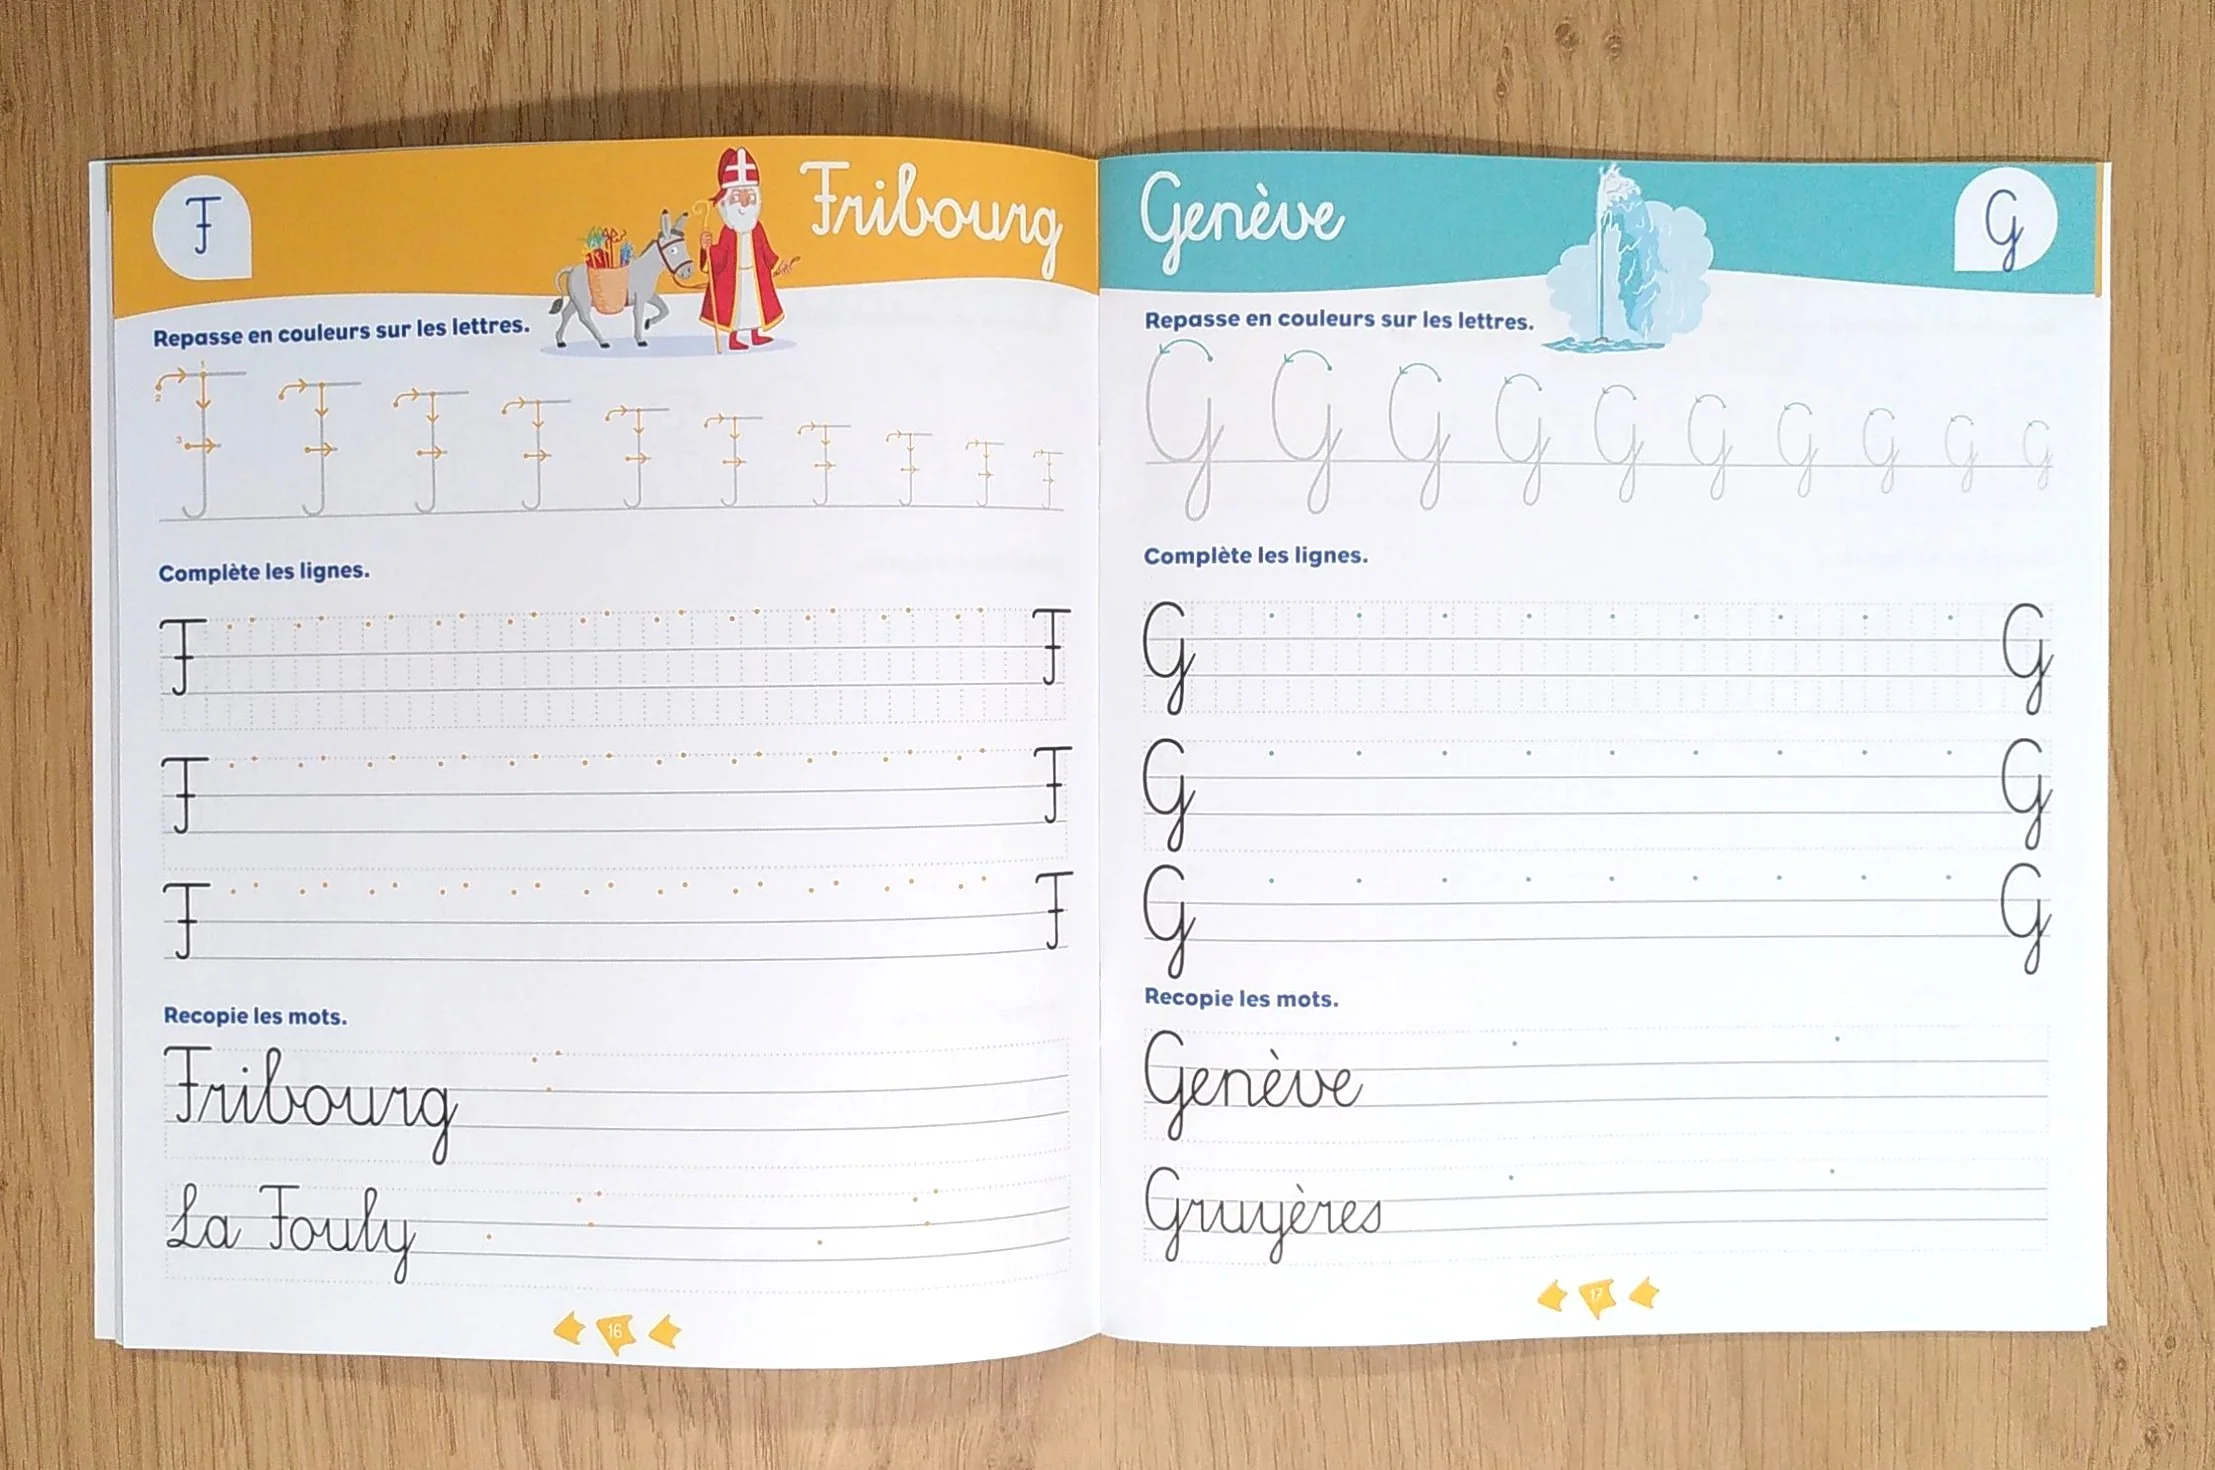 F Fribourg
Repasse en couleurs sur les lettres.
1 2 3
F F F F F F F F F F
Complète les lignes.
F F
F F
F F
Recopie les mots.
Fribourg
La Fouly
16
Genève G
Repasse en couleurs sur les lettres.
G G G G G G G G G G
Complète les lignes.
G G
G G
G G
Recopie les mots.
Genève
Gruyères
17